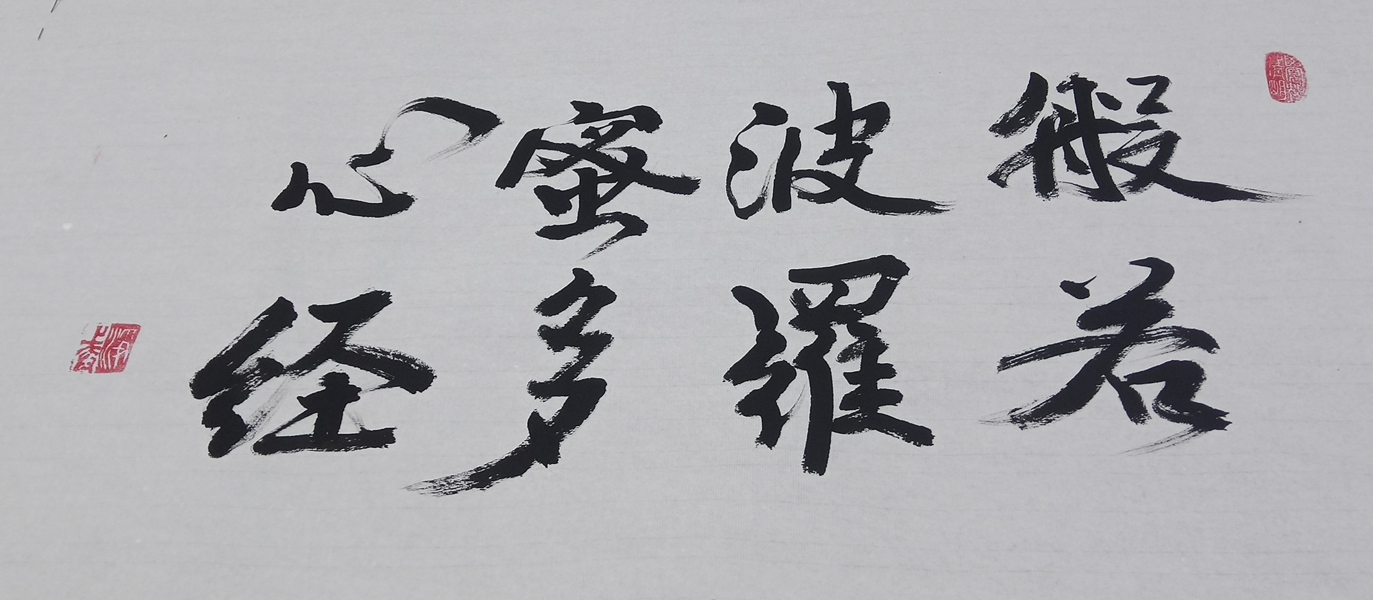 般若
波羅
蜜多
心经